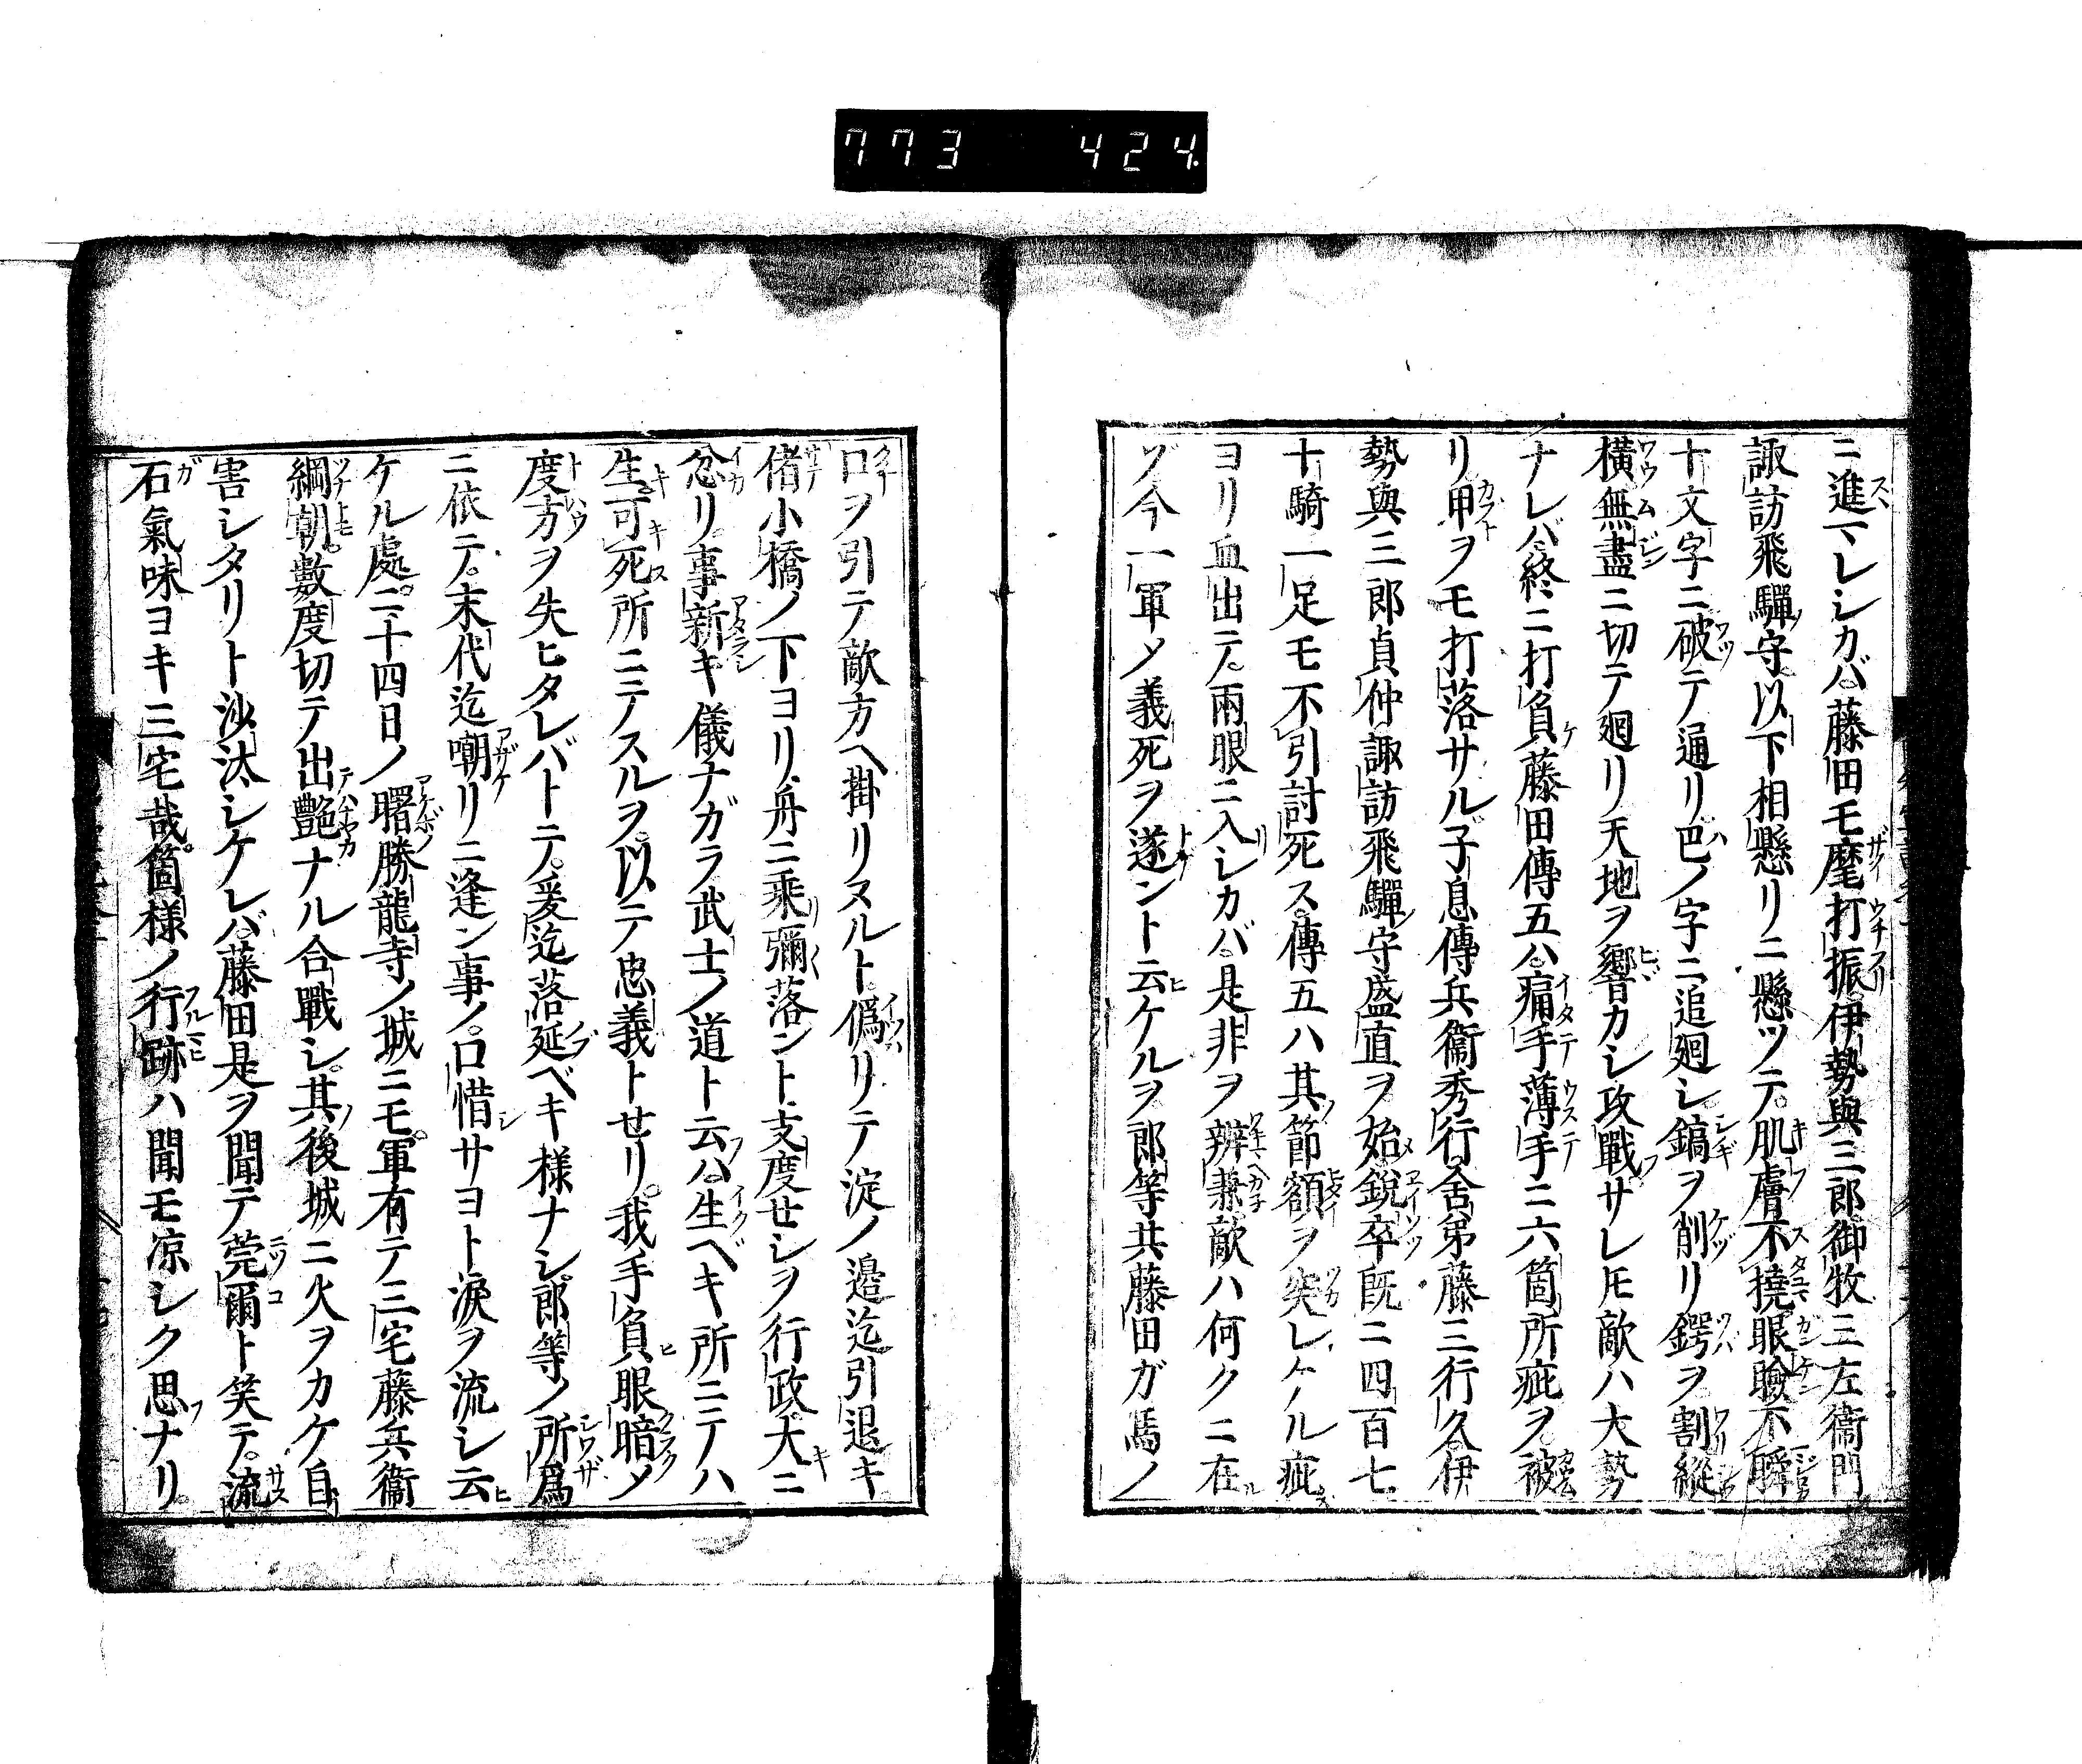 773 424
ニ進マレシカバ。藤田モ麾打振。伊勢與三郎御牧三左衞門
諏訪飛驒守。以下相懸リニ懸ツテ。肌膚不撓眼瞼不瞬
十文字ニ破テ通リ。巴ノ字ニ追廻シ鎬ヲ削リ鍔ヲ割縱
横無盡ニ切テ廻リ天地ヲ響カシ攻戰サレ𪜈敵ハ大勢
ナレバ終ニ打負藤田傳五ハ。痛手薄手ニ六箇所疵ヲ被
リ甲ヲモ打落サル子息傳兵衞秀行舍弟藤三行久。伊
勢與三郎貞仲諏訪飛驒守盛直ヲ始鋭卒既ニ四百七
十騎一足モ不引討死ス。傳五ハ其節額ヲ突レケル疵
ヨリ血出テ。兩眼ニ入シカバ。是非ヲ辨兼敵ハ何クニ在
ゾ今一軍メ義死ヲ遂ント云ケルヲ郎等共藤田ガ馬ノ
口ヲ引テ敵方ヘ掛リヌルト。僞リテ淀ノ邉迄引退キ
偖小橋ノ下ヨリ舟ニ乘彌落ント支度せシヲ行政大ニ
忿リ。事新キ儀ナガラ武士ノ道ト云ハ。生ベキ所ニテハ
生。可死所ニテスルヲ。以テ忠義トせリ。我手負眼暗メ
度方ヲ失ヒタレバトテ。爰迄落延ベキ樣ナシ。郎等ノ所爲
ニ依テ。末代迄嘲リニ逢ン事ノ。口惜サヨト淚ヲ流シ云
ケル處ニ。十四日ノ曙勝龍寺ノ城ニモ。軍有テ三宅藤兵衞
綱朝。數度切テ出艶ナル合戰シ。其後城ニ火ヲカケ自
害シタリト沙汰シケレバ。藤田是ヲ聞テ莞爾ト笑テ。流
石氣味ヨキ三宅哉。箇樣ノ行跡ハ聞モ凉シク思ナリ。